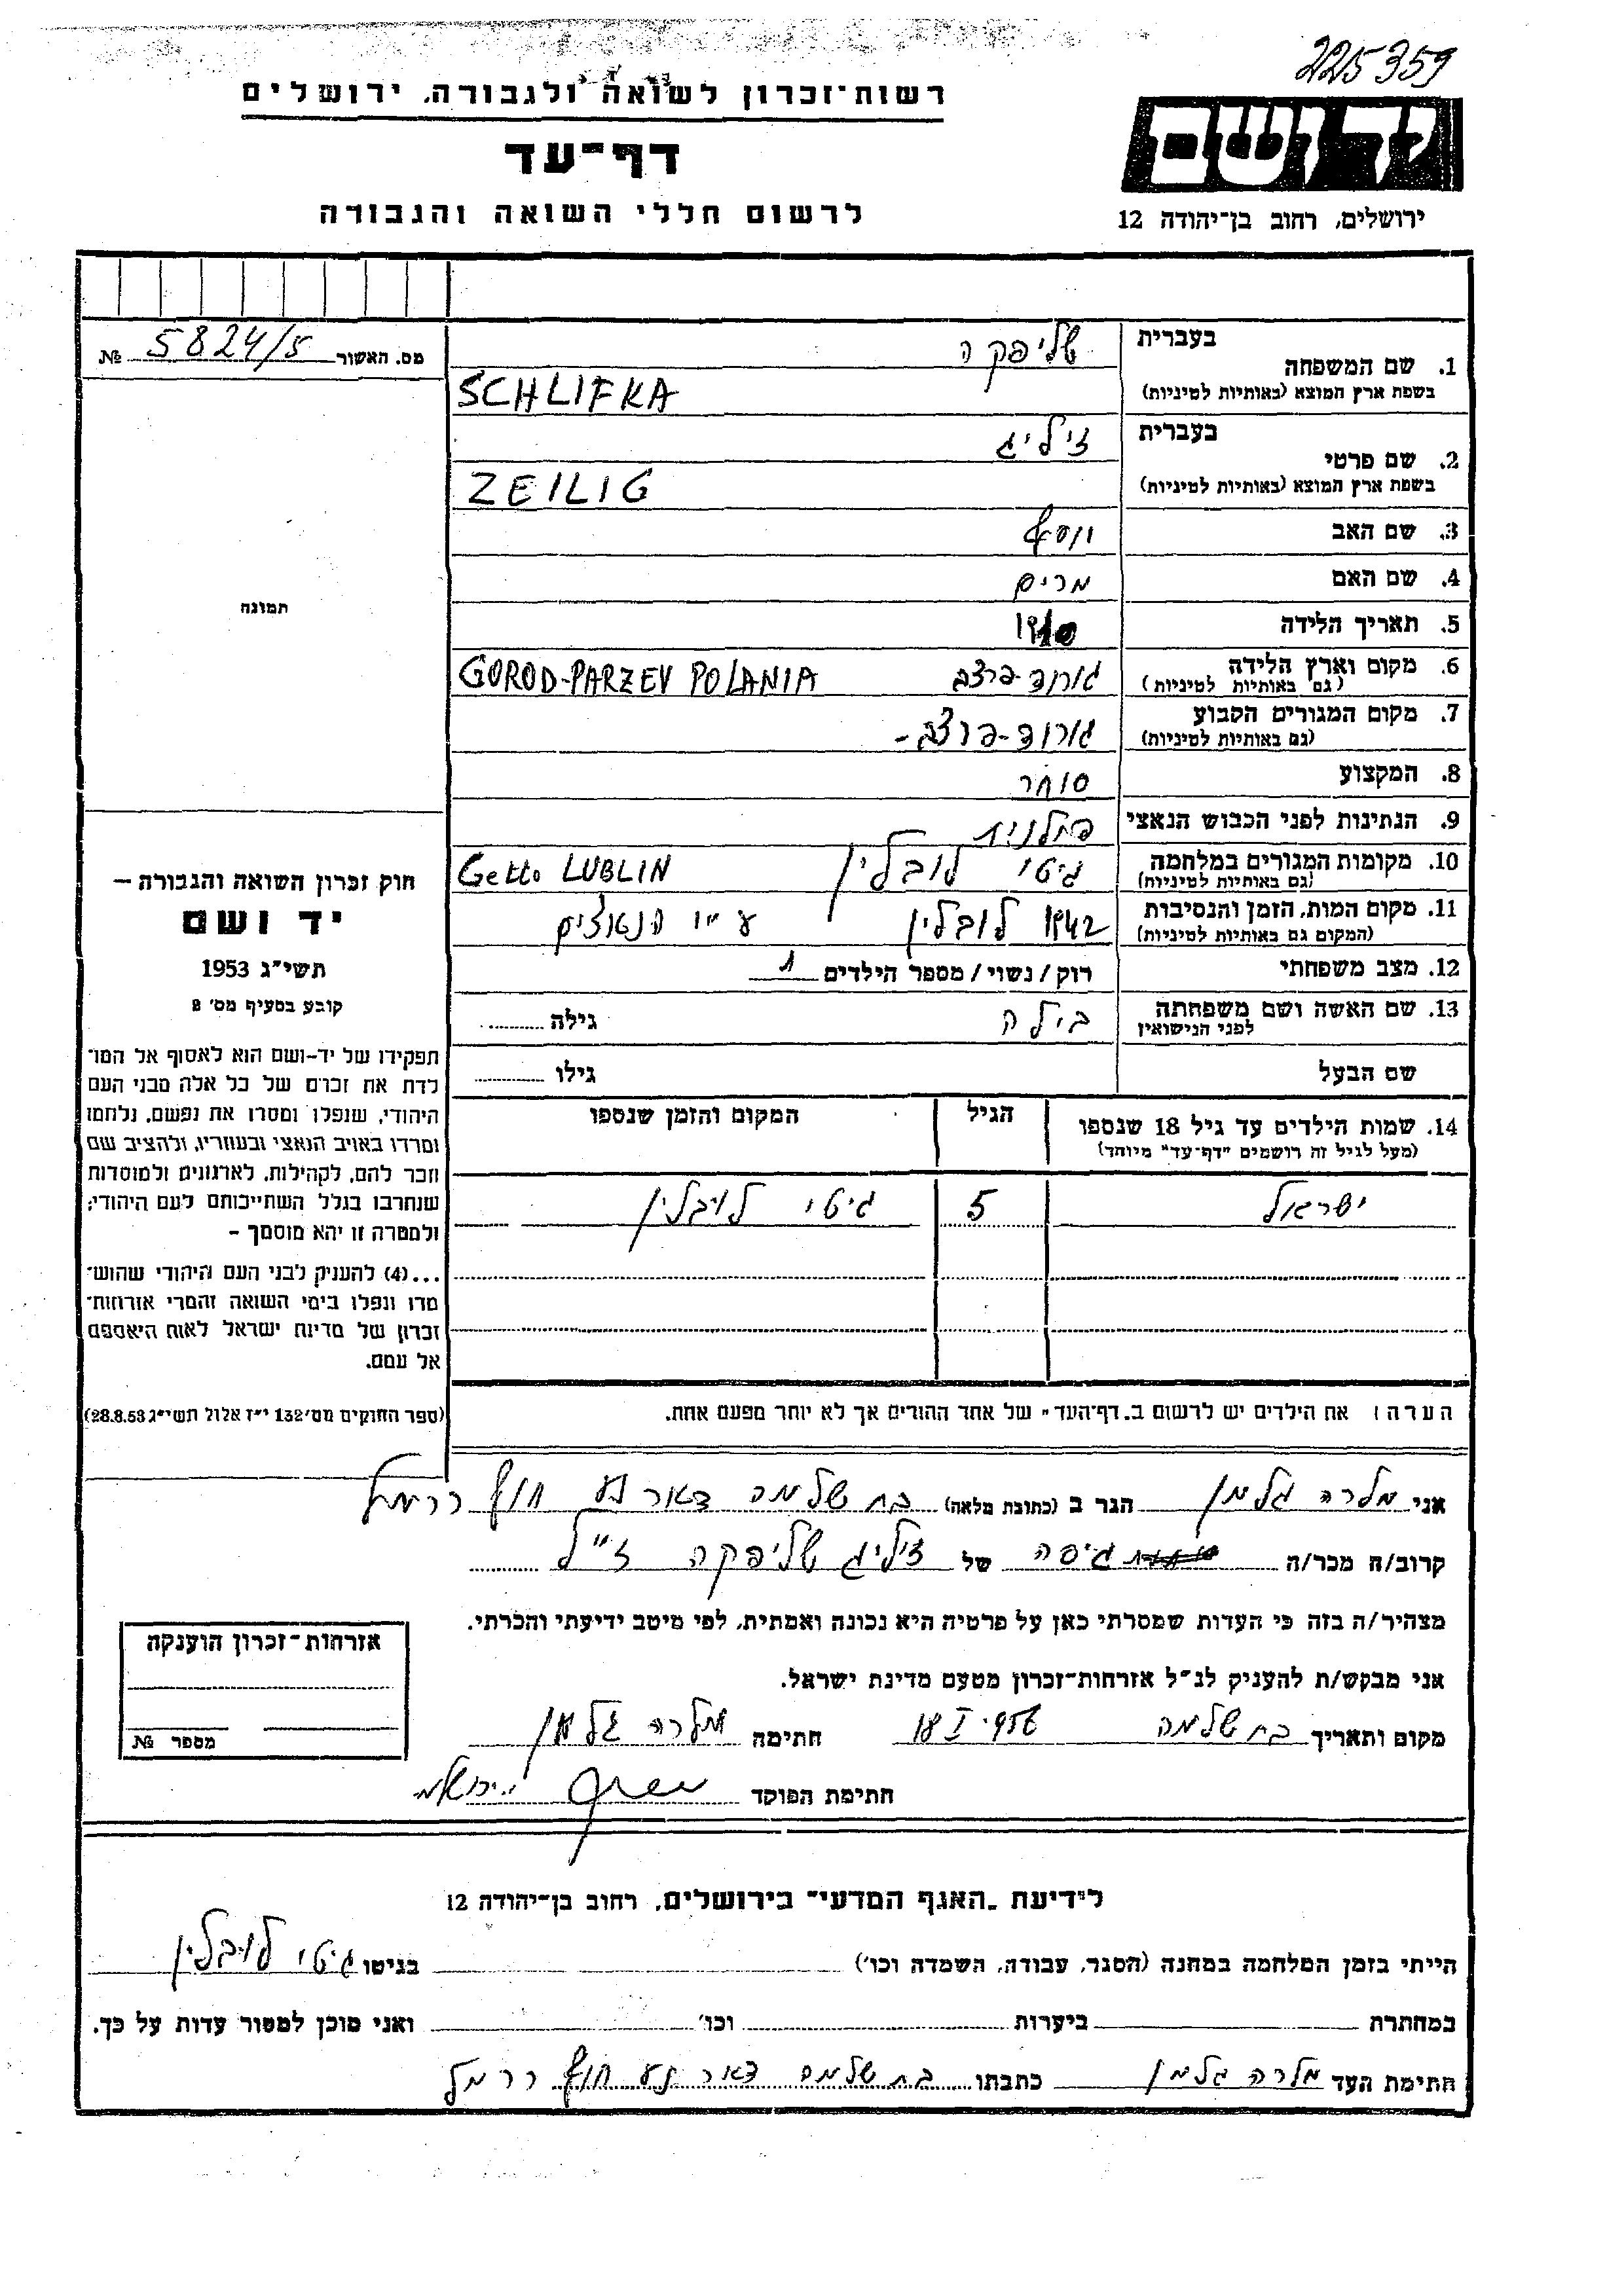 225359
רשות־זכרון לשואה ולגבורה, ירושלים
דף־עד
לרשום חללי השואה והגבורה
יד ושם
ירושלים, רחוב בן־יהודה 12
מס. האשור 5824/5 №
בעברית שליפקה
1. שם המשפחה
בשפת ארץ המוצא (באותיות לטיניות) SCHLIFKA
בעברית זיליג
2. שם פרטי
בשפת ארץ המוצא (באותיות לטיניות) ZEILIG
3. שם האב יוסף
4. שם האם מרים
5. תאריך הלידה 1910
6. מקום וארץ הלידה גורוד-פרצב GOROD-PARZEV POLANIA
(גם באותיות לטיניות)
7. מקום המגורים הקבוע גורוד-פרצב-
(גם באותיות לטיניות)
8. המקצוע סוחר
9. הנתינות לפני הכבוש הנאצי פולנית
10. מקומות המגורים במלחמה גיטו לובלין Getto LUBLIN
(גם באותיות לטיניות)
11. מקום המות, הזמן והנסיבות 1942 לובלין ע"י הנאצים
(המקום גם באותיות לטיניות)
12. מצב משפחתי רוק/נשוי/מספר הילדים 1
13. שם האשה ושם משפחתה בילה גילה
לפני הנישואין
שם הבעל גילו
14. שמות הילדים עד גיל 18 שנספו הגיל המקום והזמן שנספו
(מעל לגיל זה רושמים "דף־עד" מיוחד)
ישראל 5 גיטו לובלין
הערה: את הילדים יש לרשום ב„דף־העד" של אחד ההורים אך לא יותר מפעם אחת.
תמונה
חוק זכרון השואה והגבורה –
יד ושם
תשי"ג 1953
קובע בסעיף מס' 8
תפקידו של יד-ושם הוא לאסוף אל המו־
לדת את זכרם של כל אלה מבני העם
היהודי, שנפלו ומסרו את נפשם, נלחמו
ומרדו באויב הנאצי ובעוזריו, ולהציב שם
וזכר להם, לקהילות, לארגונים ולמוסדות
שנחרבו בגלל השתייכותם לעם היהודי;
ולמטרה זו יהא מוסמך –
...(4) להעניק לבני העם היהודי שהוש־
מדו ונפלו בימי השואה והמרי אזרחות־
זכרון של מדינת ישראל לאות היאספם
אל עמם.
(ספר החוקים מס' 132 י"ז אלול תשי"ג 28.8.53)
אני מלכה גלמן הגר ב (כתובת מלאה) בת שלמה דאר נע חוף כרמל
קרוב/ה מכר/ה גיסה של זיליג שליפקה ז"ל
מצהיר/ה בזה כי העדות שמסרתי כאן על פרטיה היא נכונה ואמתית, לפי מיטב ידיעתי והכרתי.
אני מבקש/ת להעניק לנ"ל אזרחות־זכרון מטעם מדינת ישראל.
מקום ותאריך בת שלמה 18 I 956 חתימה מלכה גלמן
חתימת הפוקד
אזרחות־זכרון הוענקה
מספר №
לידיעת „האגף המדעי" בירושלים, רחוב בן־יהודה 12
הייתי בזמן המלחמה במחנה (הסגר, עבודה, השמדה וכו') בגיטו גיטו לובלין
במחתרת ביערות וכו' ואני מוכן למסור עדות על כך.
חתימת העד מלכה גלמן כתבתו בת שלמה דאר נע חוף כרמל